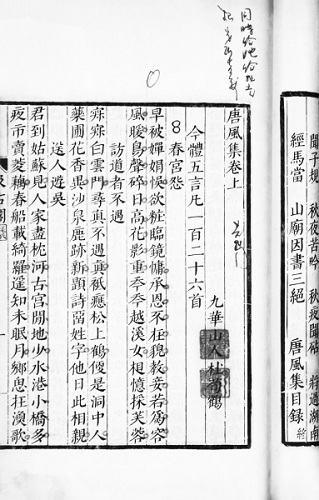 聞子規 秋夜苦吟 秋夜聞砧 將過湖南
經馬當 山廟因書三絕 唐風集目錄 終
唐風集卷上
九華山人杜荀鶴
今體五言凡一百二十六首
春宮怨
早被嬋娟悞欲粧臨鏡慵承恩不在貌教妾若爲容
風暖鳥聲碎日高花影重年年越溪女相憶採芙蓉
訪道者不遇
寂寂白雲門尋真不遇真秖應松上鶴便是洞中人
藥圃花香異沙泉鹿跡新題詩留姓字他日此相親
送人遊吳
君到姑蘇見人家盡枕河古宮閒地少水港小橋多
夜市賣菱藕春船載綺羅遥知未眠月鄉思在漁歌
汲古閣